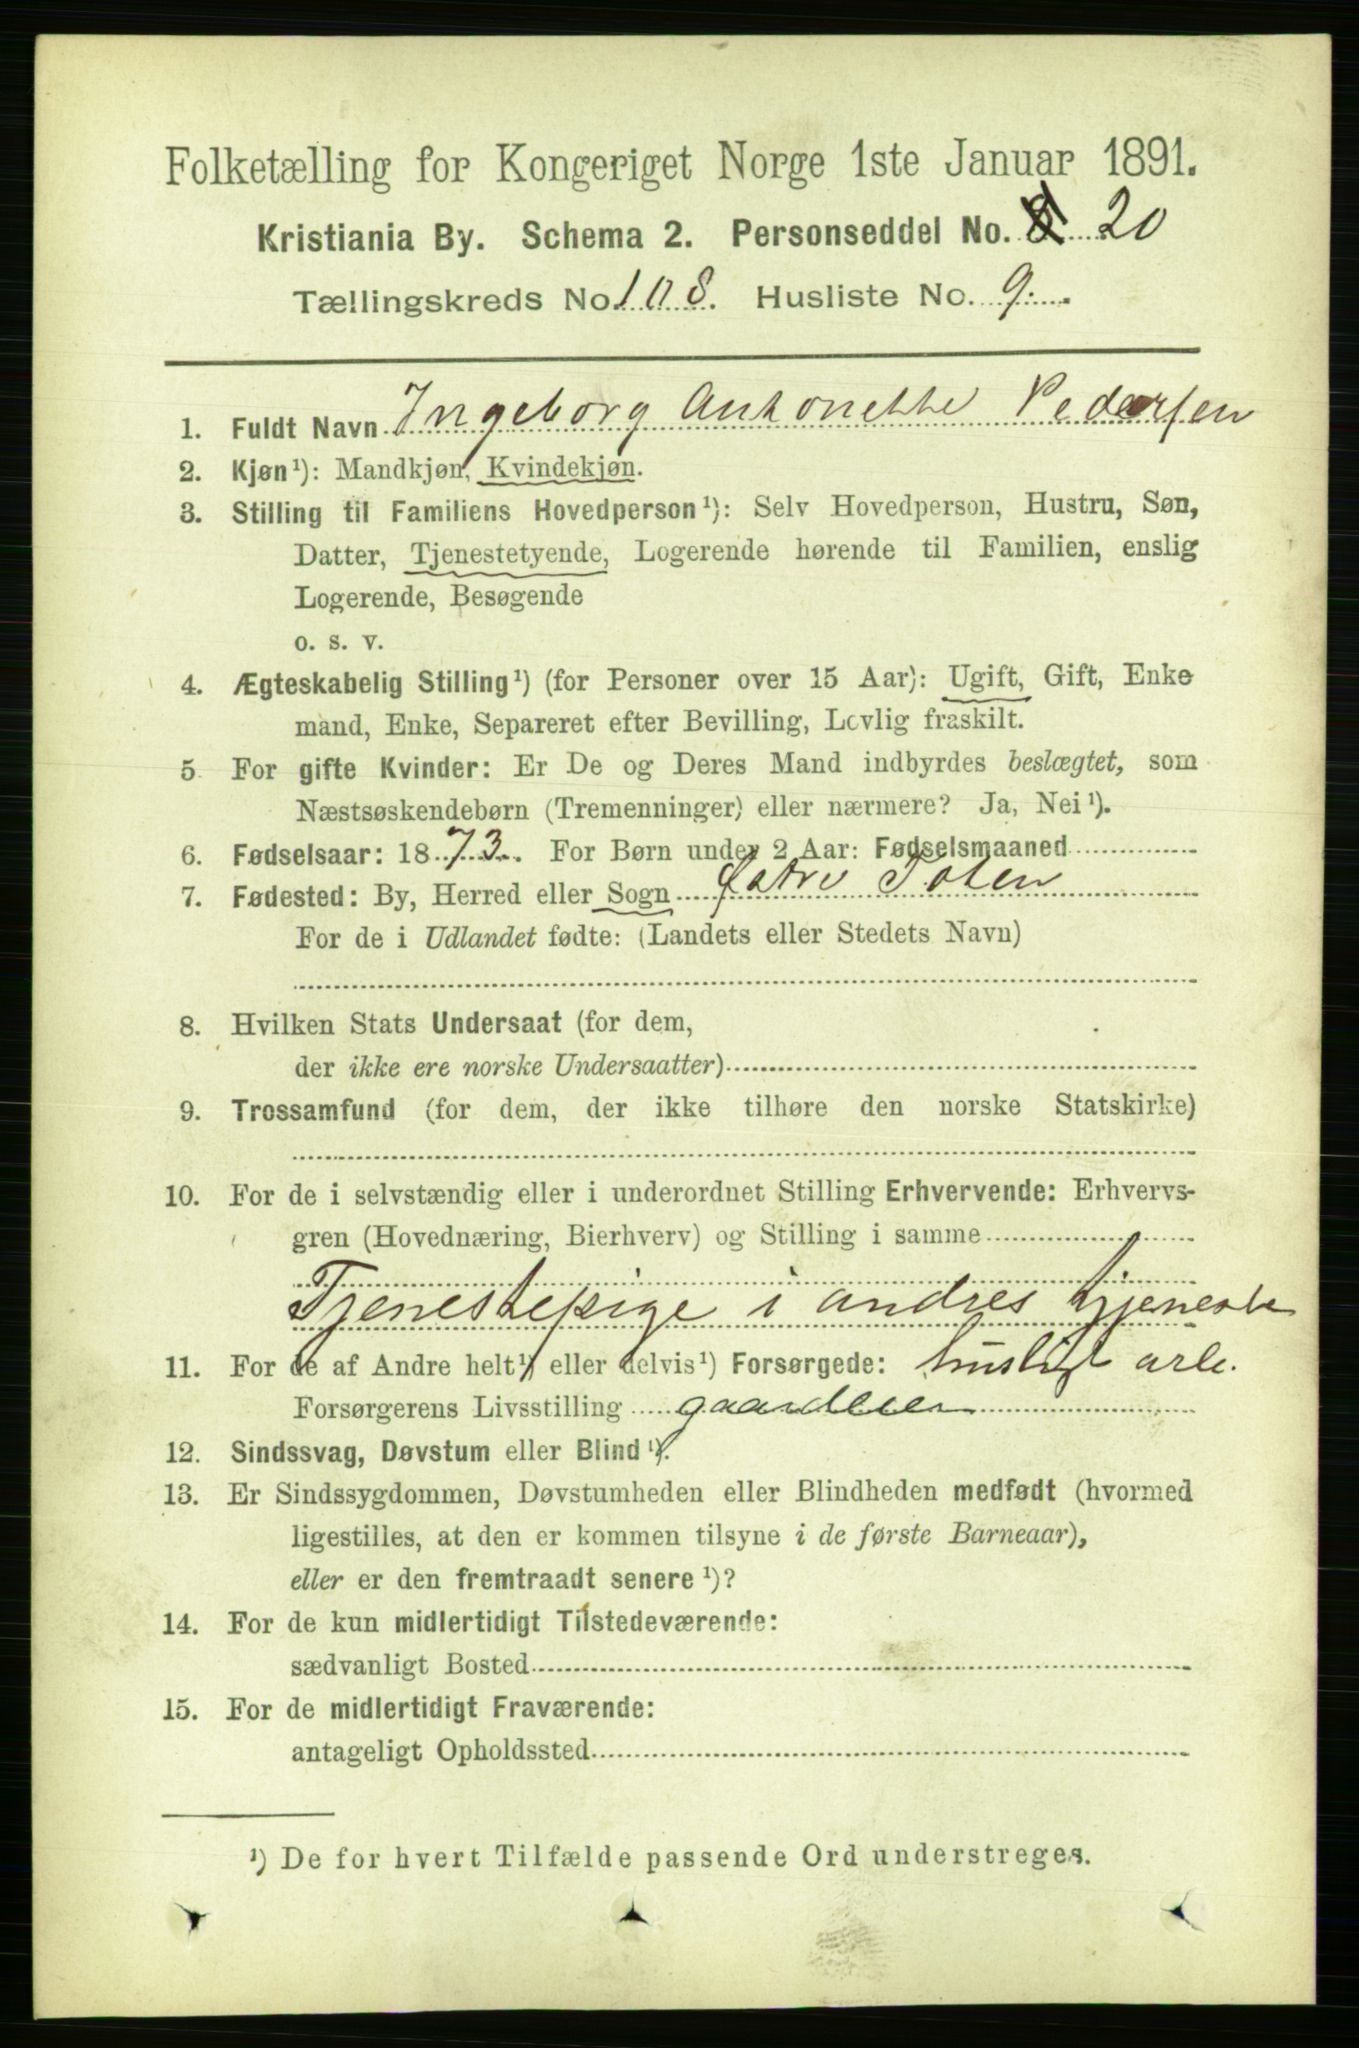 Folketælling for Kongeriget Norge 1ste Januar 1891.
Kristiania By. Schema 2. Personseddel No. 8 20
Tællingskreds No. 108. Husliste No. 9.
1. Fuldt Navn Ingeborg Antonette Pedersen
2. Kjøn¹): Mandkjøn, Kvindekjøn.
3. Stilling til Familiens Hovedperson¹): Selv Hovedperson, Hustru, Søn,
Datter, Tjenestetyende, Logerende hørende til Familien, enslig
Logerende, Besøgende
o. s. v.
4. Ægteskabelig Stilling¹) (for Personer over 15 Aar): Ugift, Gift, Enke
mand, Enke, Separeret efter Bevilling, Lovlig fraskilt.
5 For gifte Kvinder: Er De og Deres Mand indbyrdes beslægtet, som
Næstsøskendebørn (Tremenninger) eller nærmere? Ja, Nei¹).
6. Fødselsaar: 1873. For Børn under 2 Aar: Fødselsmaaned
7. Fødested: By, Herred eller Sogn Østre Toten
For de i Udlandet fødte: (Landets eller Stedets Navn)
8. Hvilken Stats Undersaat (for dem,
der ikke ere norske Undersaatter)
9. Trossamfund (for dem, der ikke tilhøre den norske Statskirke)
10. For de i selvstændig eller i underordnet Stilling Erhvervende: Erhvervs-
gren (Hovednæring, Bierhverv) og Stilling i samme
Tjenestepige i andres tjeneste
11. For de af Andre helt¹) eller delvis¹) Forsørgede: husligt arb.
Forsørgerens Livsstilling gaardeier
12. Sindssvag, Døvstum eller Blind¹).
13. Er Sindssygdommen, Døvstumheden eller Blindheden medfødt (hvormed
ligestilles, at den er kommen tilsyne i de første Barneaar),
eller er den fremtraadt senere¹)?
14. For de kun midlertidigt Tilstedeværende:
sædvanligt Bosted
15. For de midlertidigt Fraværende:
antageligt Opholdssted
¹) De for hvert Tilfælde passende Ord understreges.